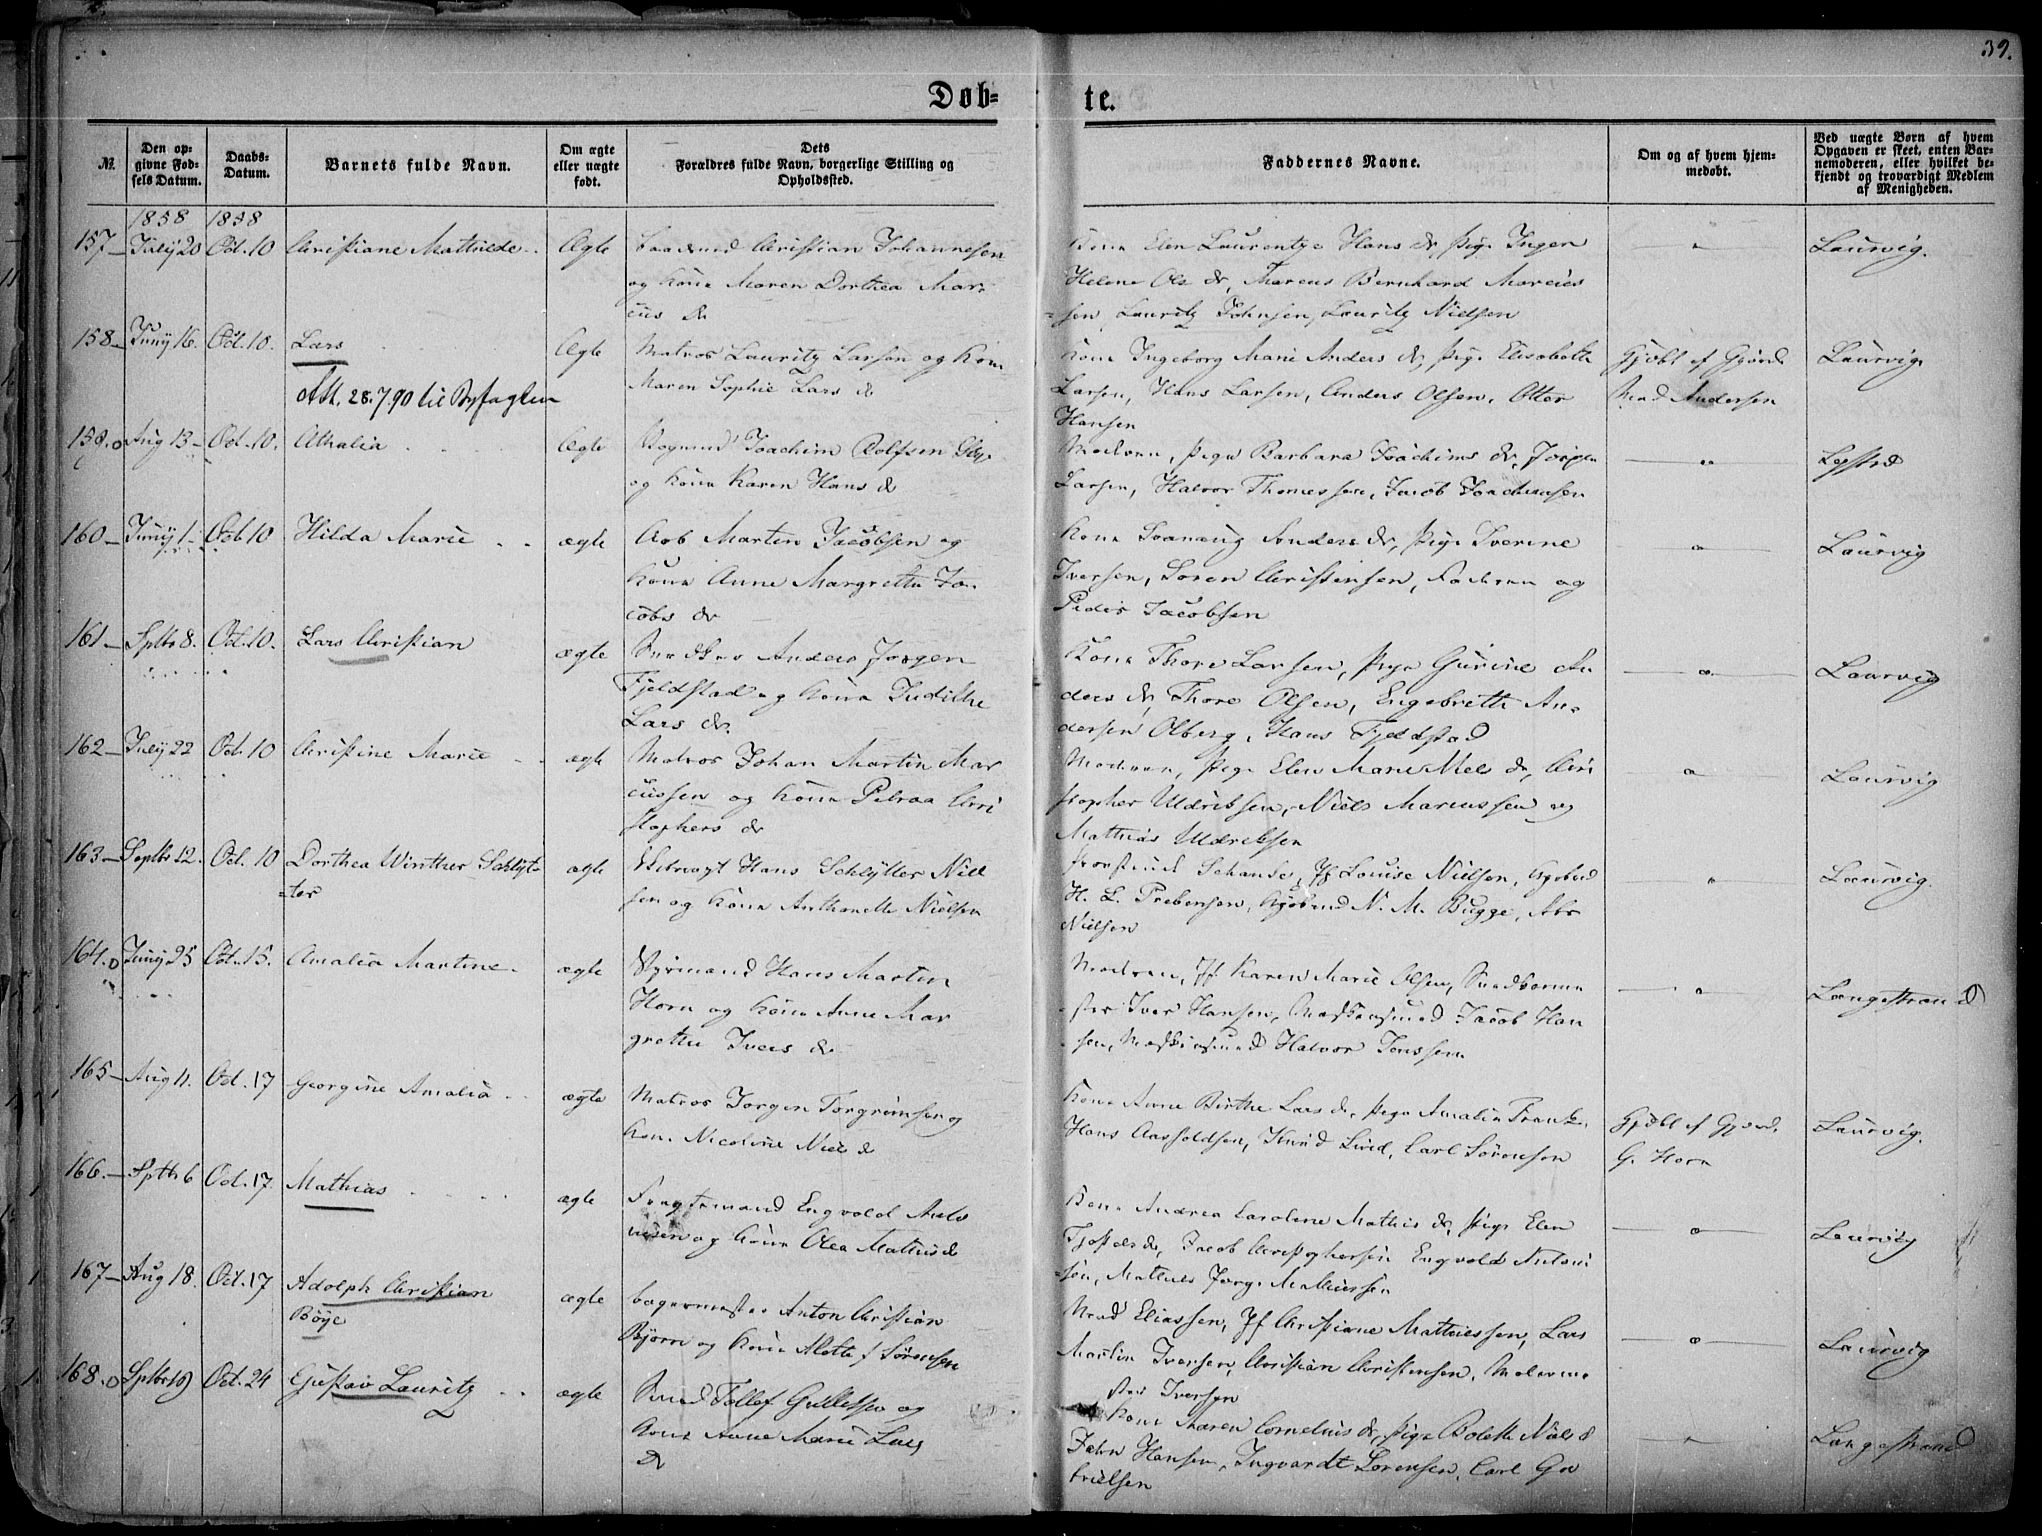 39.
Døb-
te.
№.
Den op-
givne Fød-
sels Datum.
Daabs-
Datum.
Barnets fulde Navn.
Om ægte
eller uægte
født.
Dets
Forældres fulde Navn, borgerlige Stilling og
Opholdssted.
Faddernes Navne.
Om og af hvem hjem-
medøbt.
Ved uægte Børn af hvem
Opgaven er skeet, enten Bar-
nemoderen, eller hvilket be-
kjendt og troværdigt Medlem
af Menigheden.
1858 1858
157 July 20 Oct. 10 Christiane Mathilde Ægte Christian Johannesen
og Kone Maren Dorthea Mar-
cus dr
Kone Elen Laurentze Hans dr, Pige Inger
Helene Ols dr, Marcus Bernhard Marcus-
sen, Lauritz Johnsen, Lauritz Nielsen
Laurvig.
158 Juny 16. Oct. 10. Lars Ægte Matros Lauritz Larsen og Kone
Maren Sophie Lars dr
Att. 28.7.90 til Byfogden
Kone Ingeborg Marie Anders dr, Pige Elisabeth
Larsen, Hans Larsen, Anders Olsen, Otter
Hansen
Gjdbt af Gjordm
Mad Andersen
Laurvig
159. Aug 13 Oct. 10. Athalia Ægte Joachim Rolfsen
og Kone Karen Hans dr
Modren, Pige Barbara Joachims dr, Jørgen
Larsen, Halvor Thomessen, Jacob Joachimsen
160 Juny 1 Oct 10 Hilda Marie ægte Arb Martin Jacobsen og
Kone Anne Margrethe Ja-
cobs dr
Kone Svanaug Anders dr, Pige Iverine
Iversen, Søren Christensen, Fadren og
Peder Jacobsen
Laurvig
161 Sptbr 8. Oct. 10. Lars Christian ægte Snedker Anders Jørgen
Fjeldstad og Kone Judithe
Lars dr.
Kone Thore Larsen, Pige Gurine An
ders dr, Thore Olsen, Engebreth An-
dersen Olberg, Hans Fjeldstad
Laurvig
162 July 22 Oct. 10 Christine Marie ægte Matros Johan Martin Mar
cussen og Kone Petrea Chri
stophers dr
Modren, Pige Elen Marie Nels dr, Chri
stopher Uldriksen, Niels Marcussen og
Mathias Uldriksen
Laurvig
163 Septbr 12. Oct. 10 Dorthea Winther Schlyt-
ter
ægte Hans Schlytter Niel
sen og Kone Anthonette Nielsen
Schanke, Jf Louise Nielsen, Kjøbmd
H. L. Prebensen, Kjøbmd N. M. Bugge, Abr
Nielsen
Laurvig.
164. Juny 25 Oct. 15. Amalia Martine ægte Styrmand Hans Martin
Horn og Kone Anne Mar
grethe Ivers dr
Modren, Jf Karen Marie Olsen, Snedkerme
ster Iver Hansen, Jacob Han
sen, Halvor Jenssen
Langestrand
165 Aug 11. Oct. 17 Georgine Amalia ægte Matros Jørgen Torgrimsen og
Kone Nicoline Niels dr
Kone Anne Birthe Lars dr, Pige Amalia Frank,
Hans Aasoldsen, Knud Lind, Carl Sørensen
Gjdbt af Gjordm.
G. Horn
Laurvig.
166. Sptbr 6 Oct. 17. Mathias ægte Fragtemand Engvold Anto
nisen og Kone Olea Mathis dr
Kone Andrea Caroline Mathis dr, Pige Elen
Jacob Christophersen Engvold Antoni
sen, Mathias Jørg. Mathiassen
Laurvig
167 Aug 18. Oct. 17 Adolph Christian
Böye
ægte Bagermester Anton Christian
Bjørn og Kone Alette f Sørensen
Mad Eliassen, Jf Christiane Mathiessen, Lars
Martin Iversen, Christian Christensen, Malerme
ster Iversen
Laurvig
168. Sptbr 19 Oct. 24 Gustav Lauritz ægte Smed Tollef Gullessen og
Kone Anne Marie Lars
Dr
Kone Maren Cornelius dr, Pige Bolette Niels dr
John Hansen, Ingvardt Sørensen, Carl Ga
brielsen
Langestrand